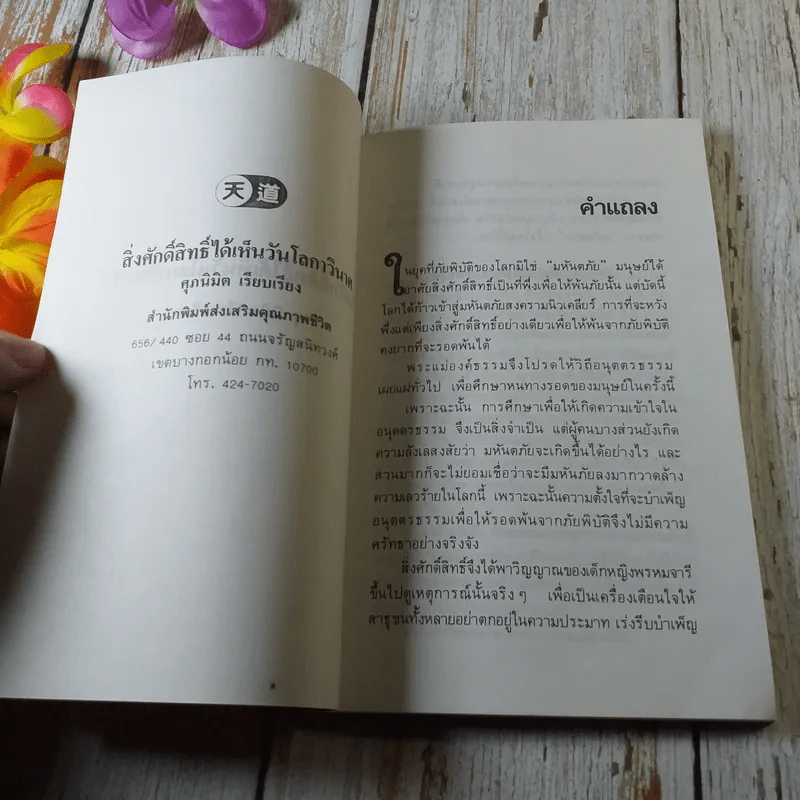 天道
สิ่งศักดิ์สิทธิ์ได้เห็นวันโลกาวินาศ
ศุภนิมิต เรียบเรียง
สำนักพิมพ์ส่งเสริมคุณภาพชีวิต
656/440 ซอย 44 ถนนจรัญสนิทวงศ์
เขตบางกอกน้อย กท. 10700
โทร. 424-7020
คำแถลง
ในยุคที่ภัยพิบัติของโลกมิใช่ "มหันตภัย" มนุษย์ได้
อาศัยสิ่งศักดิ์สิทธิ์เป็นที่พึ่งเพื่อให้พ้นภัยนั้น แต่บัดนี้
โลกได้ก้าวเข้าสู่มหันตภัยสงครามนิวเคลียร์ การที่จะหวัง
พึ่งแต่เพียงสิ่งศักดิ์สิทธิ์อย่างเดียวเพื่อให้พ้นจากภัยพิบัติ
คงยากที่จะรอดพ้นได้
พระแม่องค์ธรรมจึงโปรดให้วิถีอนุตตรธรรม
เผยแผ่ทั่วไป เพื่อศึกษาหนทางรอดของมนุษย์ในครั้งนี้
เพราะฉะนั้น การศึกษาเพื่อให้เกิดความเข้าใจใน
อนุตตรธรรม จึงเป็นสิ่งจำเป็น แต่ผู้คนบางส่วนยังเกิด
ความลังเลสงสัยว่า มหันตภัยจะเกิดขึ้นได้อย่างไร และ
ส่วนมากก็จะไม่ยอมเชื่อว่าจะมีมหันภัยลงมากวาดล้าง
ความเลวร้ายในโลกนี้ เพราะฉะนั้นความตั้งใจที่จะบำเพ็ญ
อนุตตรธรรมเพื่อให้รอดพ้นจากภัยพิบัติจึงไม่มีความ
ศรัทธาอย่างจริงจัง
สิ่งศักดิ์สิทธิ์จึงได้พาวิญญาณของเด็กหญิงพรหมจารี
ขึ้นไปดูเหตุการณ์นั้นจริง ๆ เพื่อเป็นเครื่องเตือนใจให้
สาธุชนทั้งหลายอย่าตกอยู่ในความประมาท เร่งรีบบำเพ็ญ